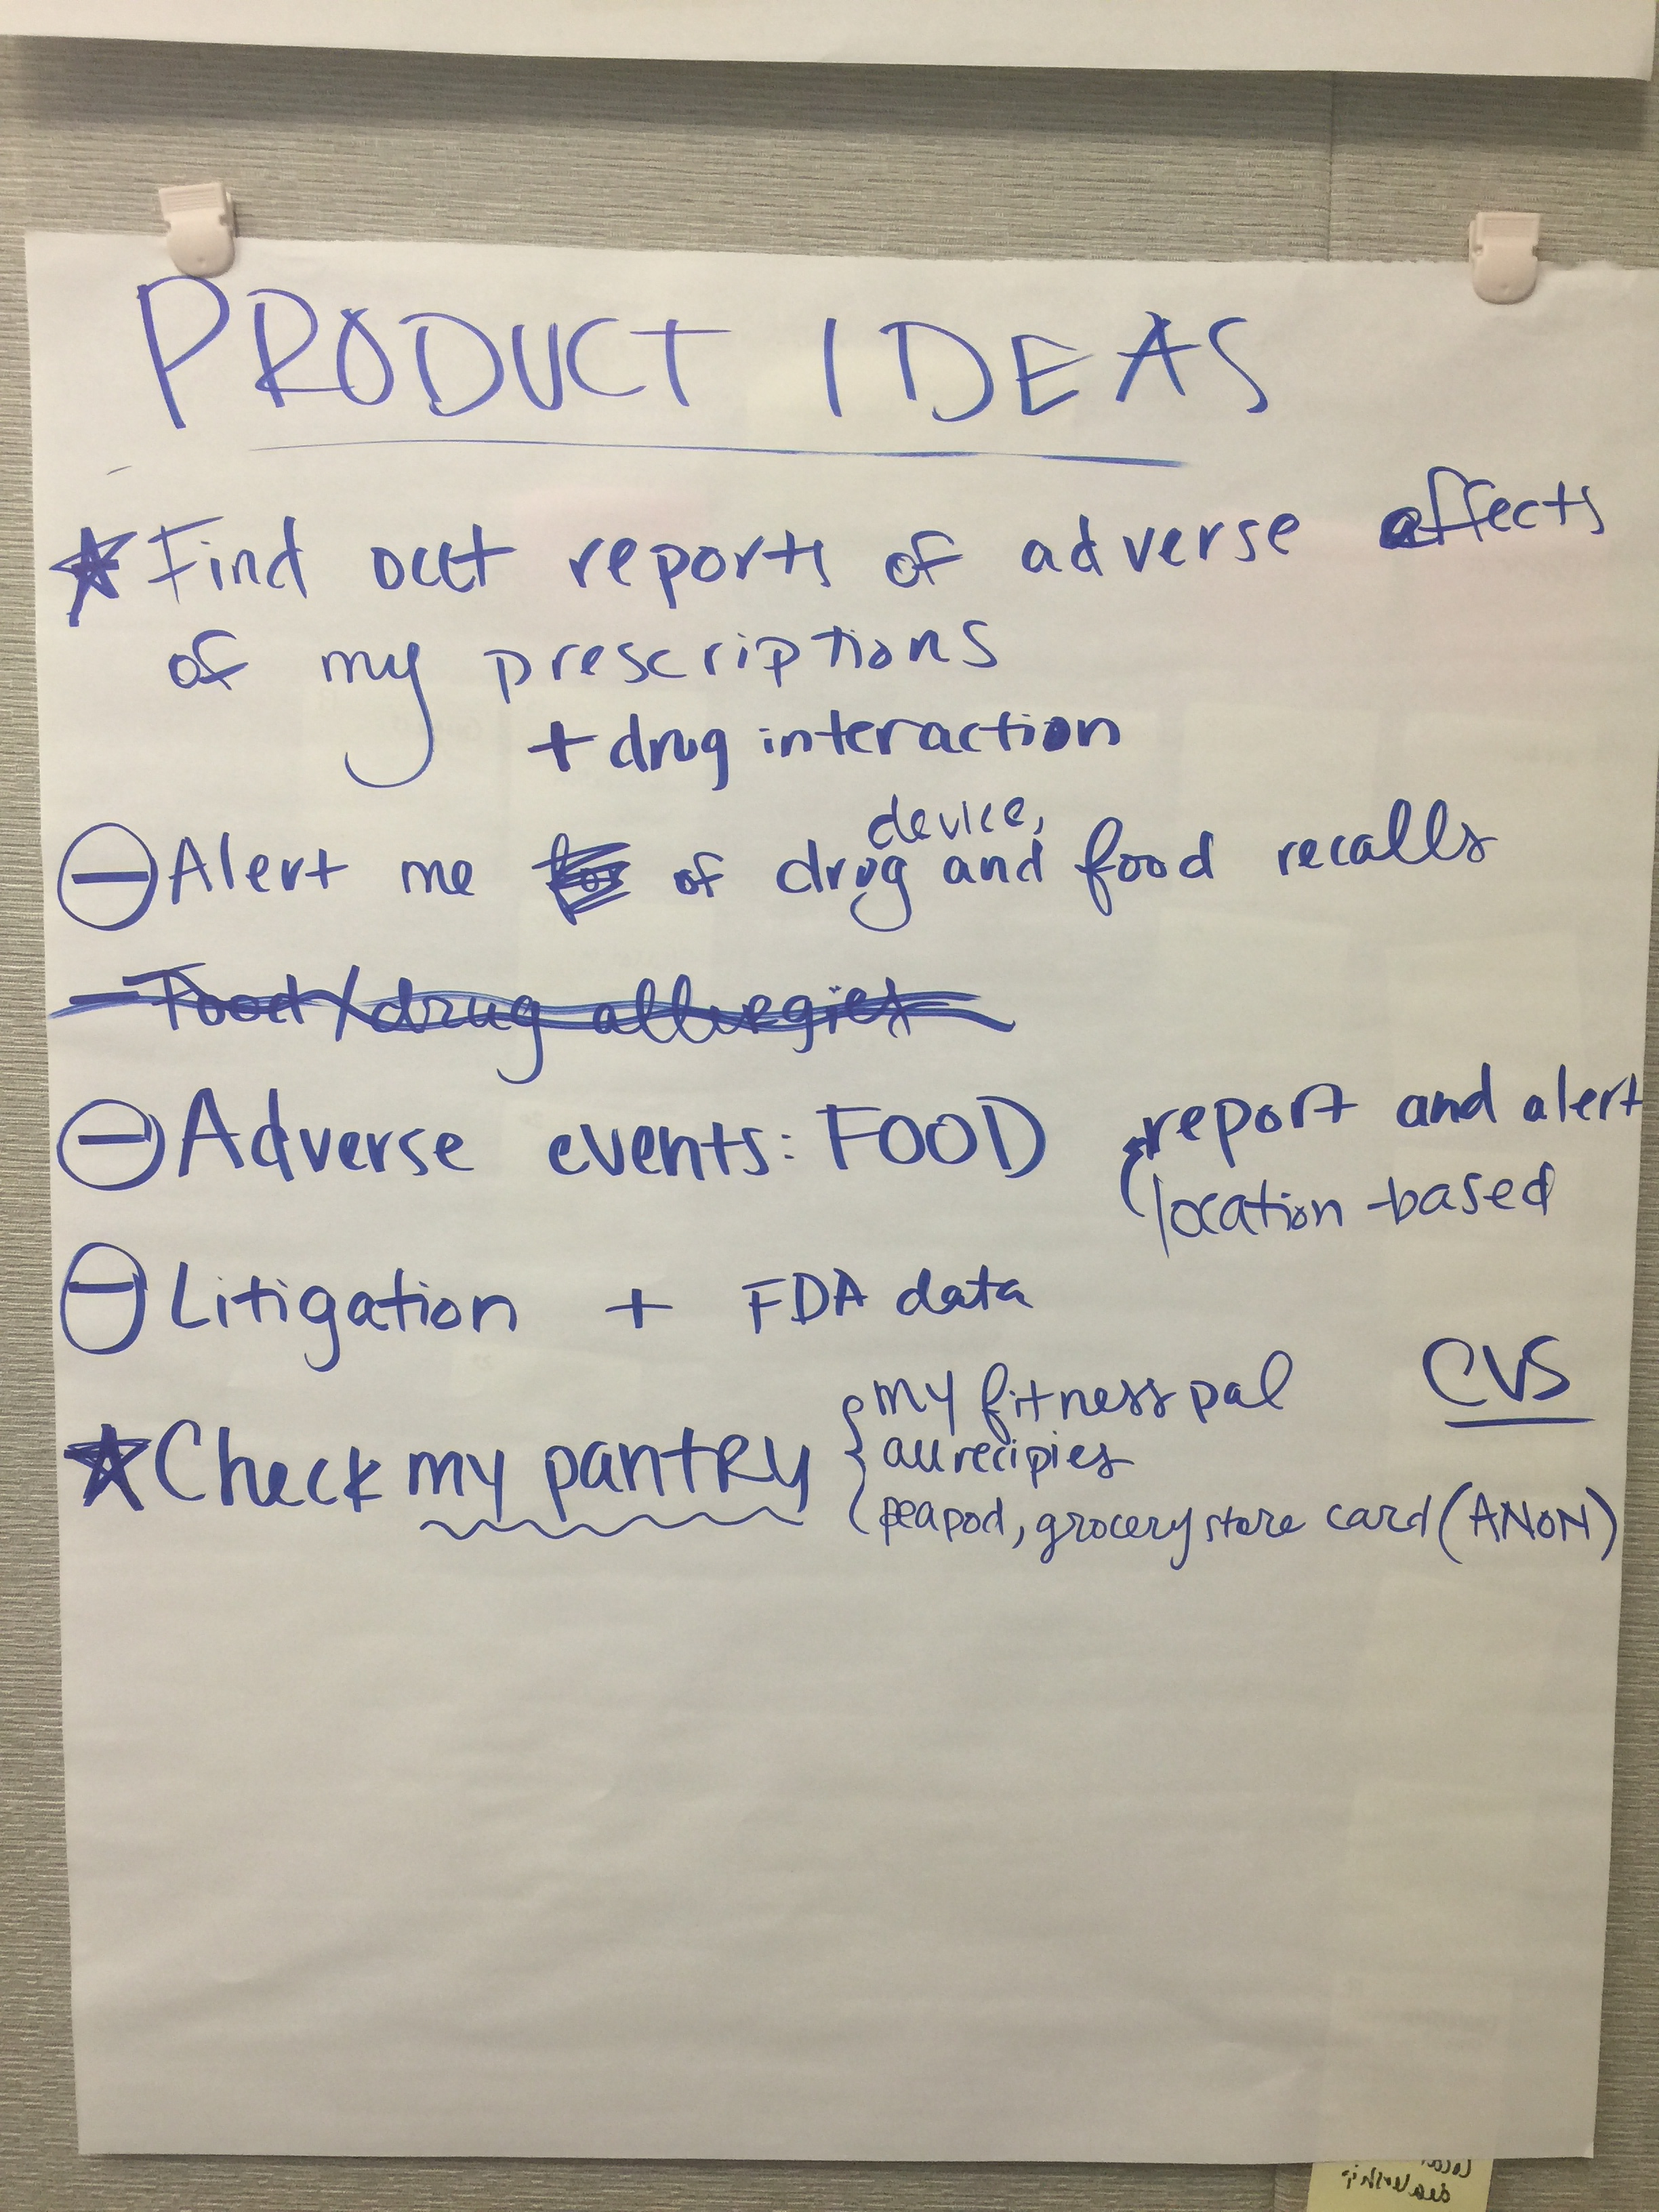 PRODUCT IDEAS
★ Find out reports of adverse affects
of my prescriptions
+ drug interaction
device,
⊖ Alert me of drug and food recalls
- Food/drug allergies
⊖ Adverse events: FOOD
report and alert
location-based
⊖ Litigation + FDA data
CVS
★ Check my pantry
my fitness pal
allrecipies
peapod, grocery store card (ANON)
dealership